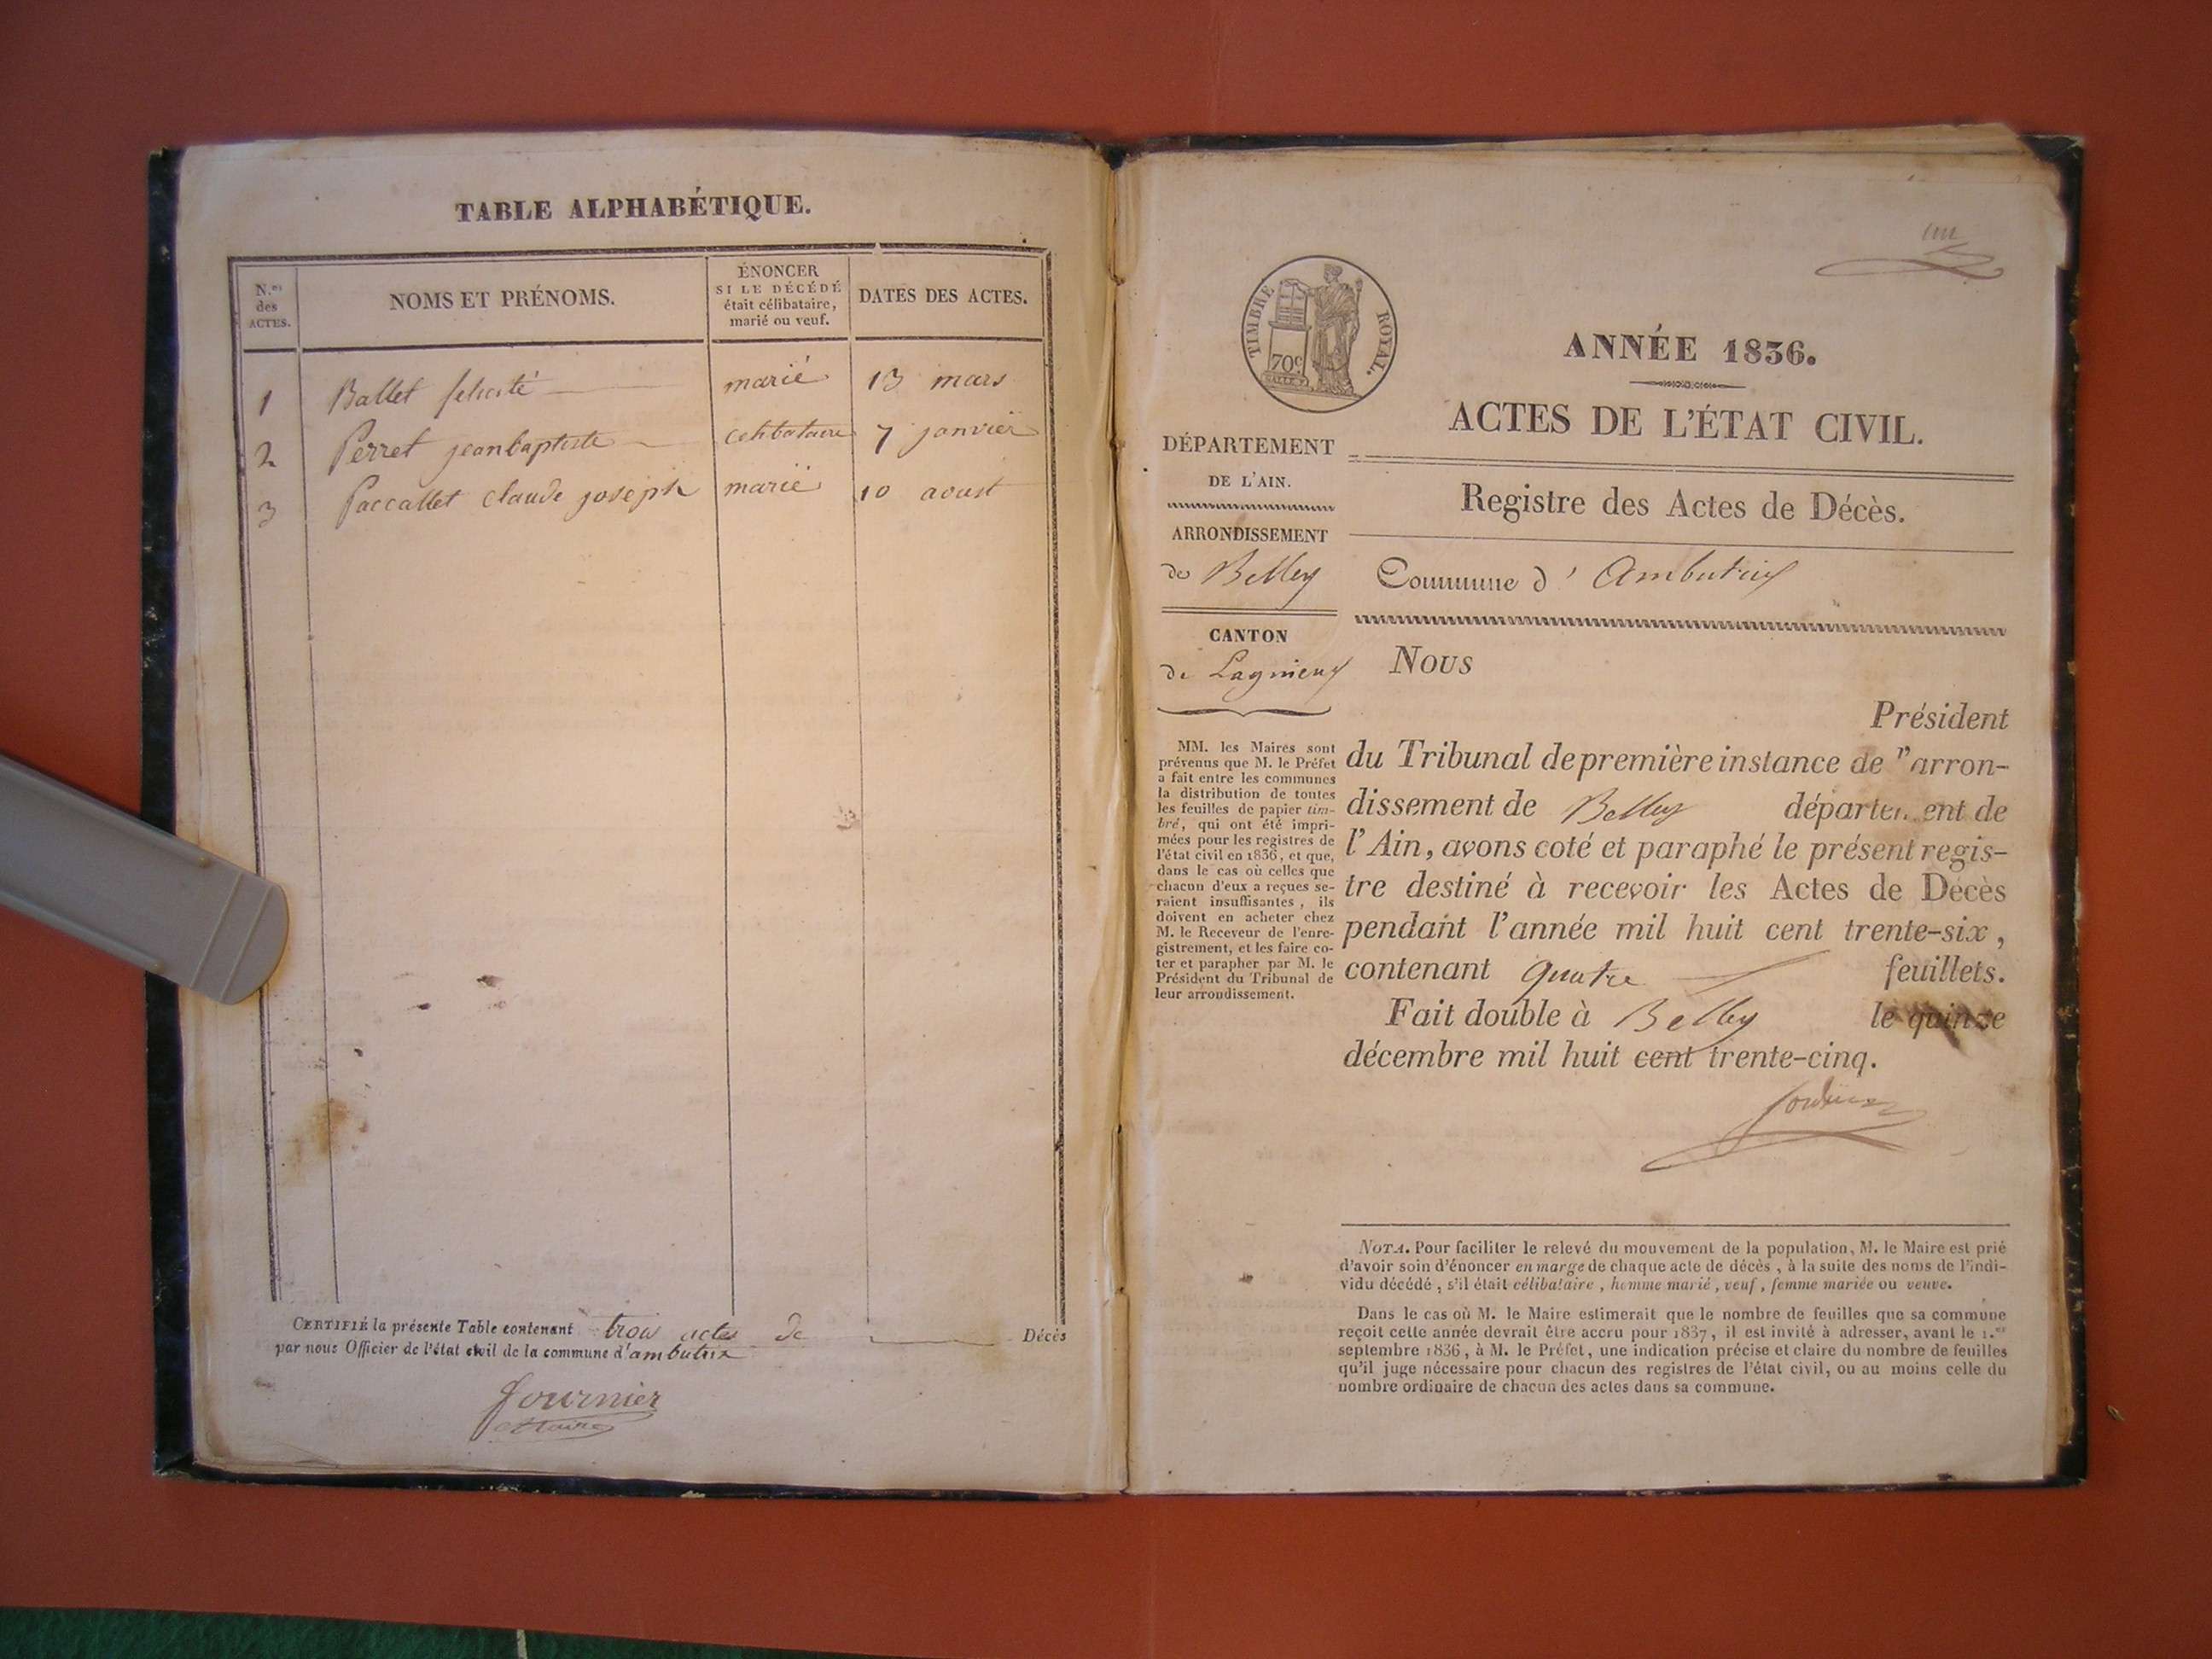 TABLE ALPHABÉTIQUE.
N.os des ACTES.
NOMS ET PRÉNOMS.
ÉNONCER
SI LE DÉCÉDÉ
était célibataire,
marié ou veuf.
DATES DES ACTES.
1 Ballet felicité marié 13 mars
2 Perret jean baptiste celibataire 7 janvier
3 Paccallet claude joseph marié 10 aoust
CERTIFIÉ la présente Table contenant trois actes de Décès
par nous Officier de l'état civil de la commune d'ambutrix
fournier
Maire
un
TIMBRE ROYAL.
70c
ANNÉE 1836.
ACTES DE L'ÉTAT CIVIL.
DÉPARTEMENT
DE L'AIN.
Registre des Actes de Décès.
ARRONDISSEMENT
de Belley
Commune d'Ambutrix
CANTON
de Lagnieux
MM. les Maires sont
prévenus que M. le Préfet
a fait entre les communes
la distribution de toutes
les feuilles de papier tim-
bré, qui ont été impri-
mées pour les registres de
l'état civil en 1836, et que,
dans le cas où celles que
chacun d'eux a reçues se-
raient insuffisantes, ils
doivent en acheter chez
M. le Receveur de l'enre-
gistrement, et les faire co-
ter et parapher par M. le
Président du Tribunal de
leur arrondissement.
Nous
Président
du Tribunal de première instance de l'arron-
dissement de Belley département de
l'Ain, avons coté et paraphé le présent regis-
tre destiné à recevoir les Actes de Décès
pendant l'année mil huit cent trente-six,
contenant quatre feuillets.
Fait double à Belley le quinze
décembre mil huit cent trente-cinq.
NOTA. Pour faciliter le relevé du mouvement de la population, M. le Maire est prié
d'avoir soin d'énoncer en marge de chaque acte de décès, à la suite des noms de l'indi-
vidu décédé, s'il était célibataire, homme marié, veuf, femme mariée ou veuve.
Dans le cas où M. le Maire estimerait que le nombre de feuilles que sa commune
reçoit cette année devrait être accru pour 1837, il est invité à adresser, avant le 1.er
septembre 1836, à M. le Préfet, une indication précise et claire du nombre de feuilles
qu'il juge nécessaire pour chacun des registres de l'état civil, ou au moins celle du
nombre ordinaire de chacun des actes dans sa commune.